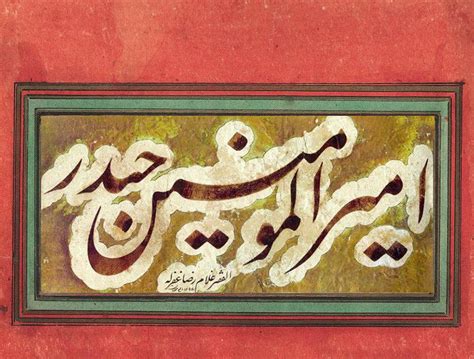 امیرالمومنین حیدر
الفقیر غلام رضا غفرله